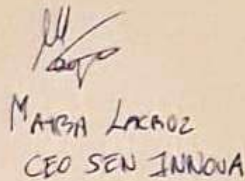 MAYRA LACRUZ
CEO SEN INNOVA